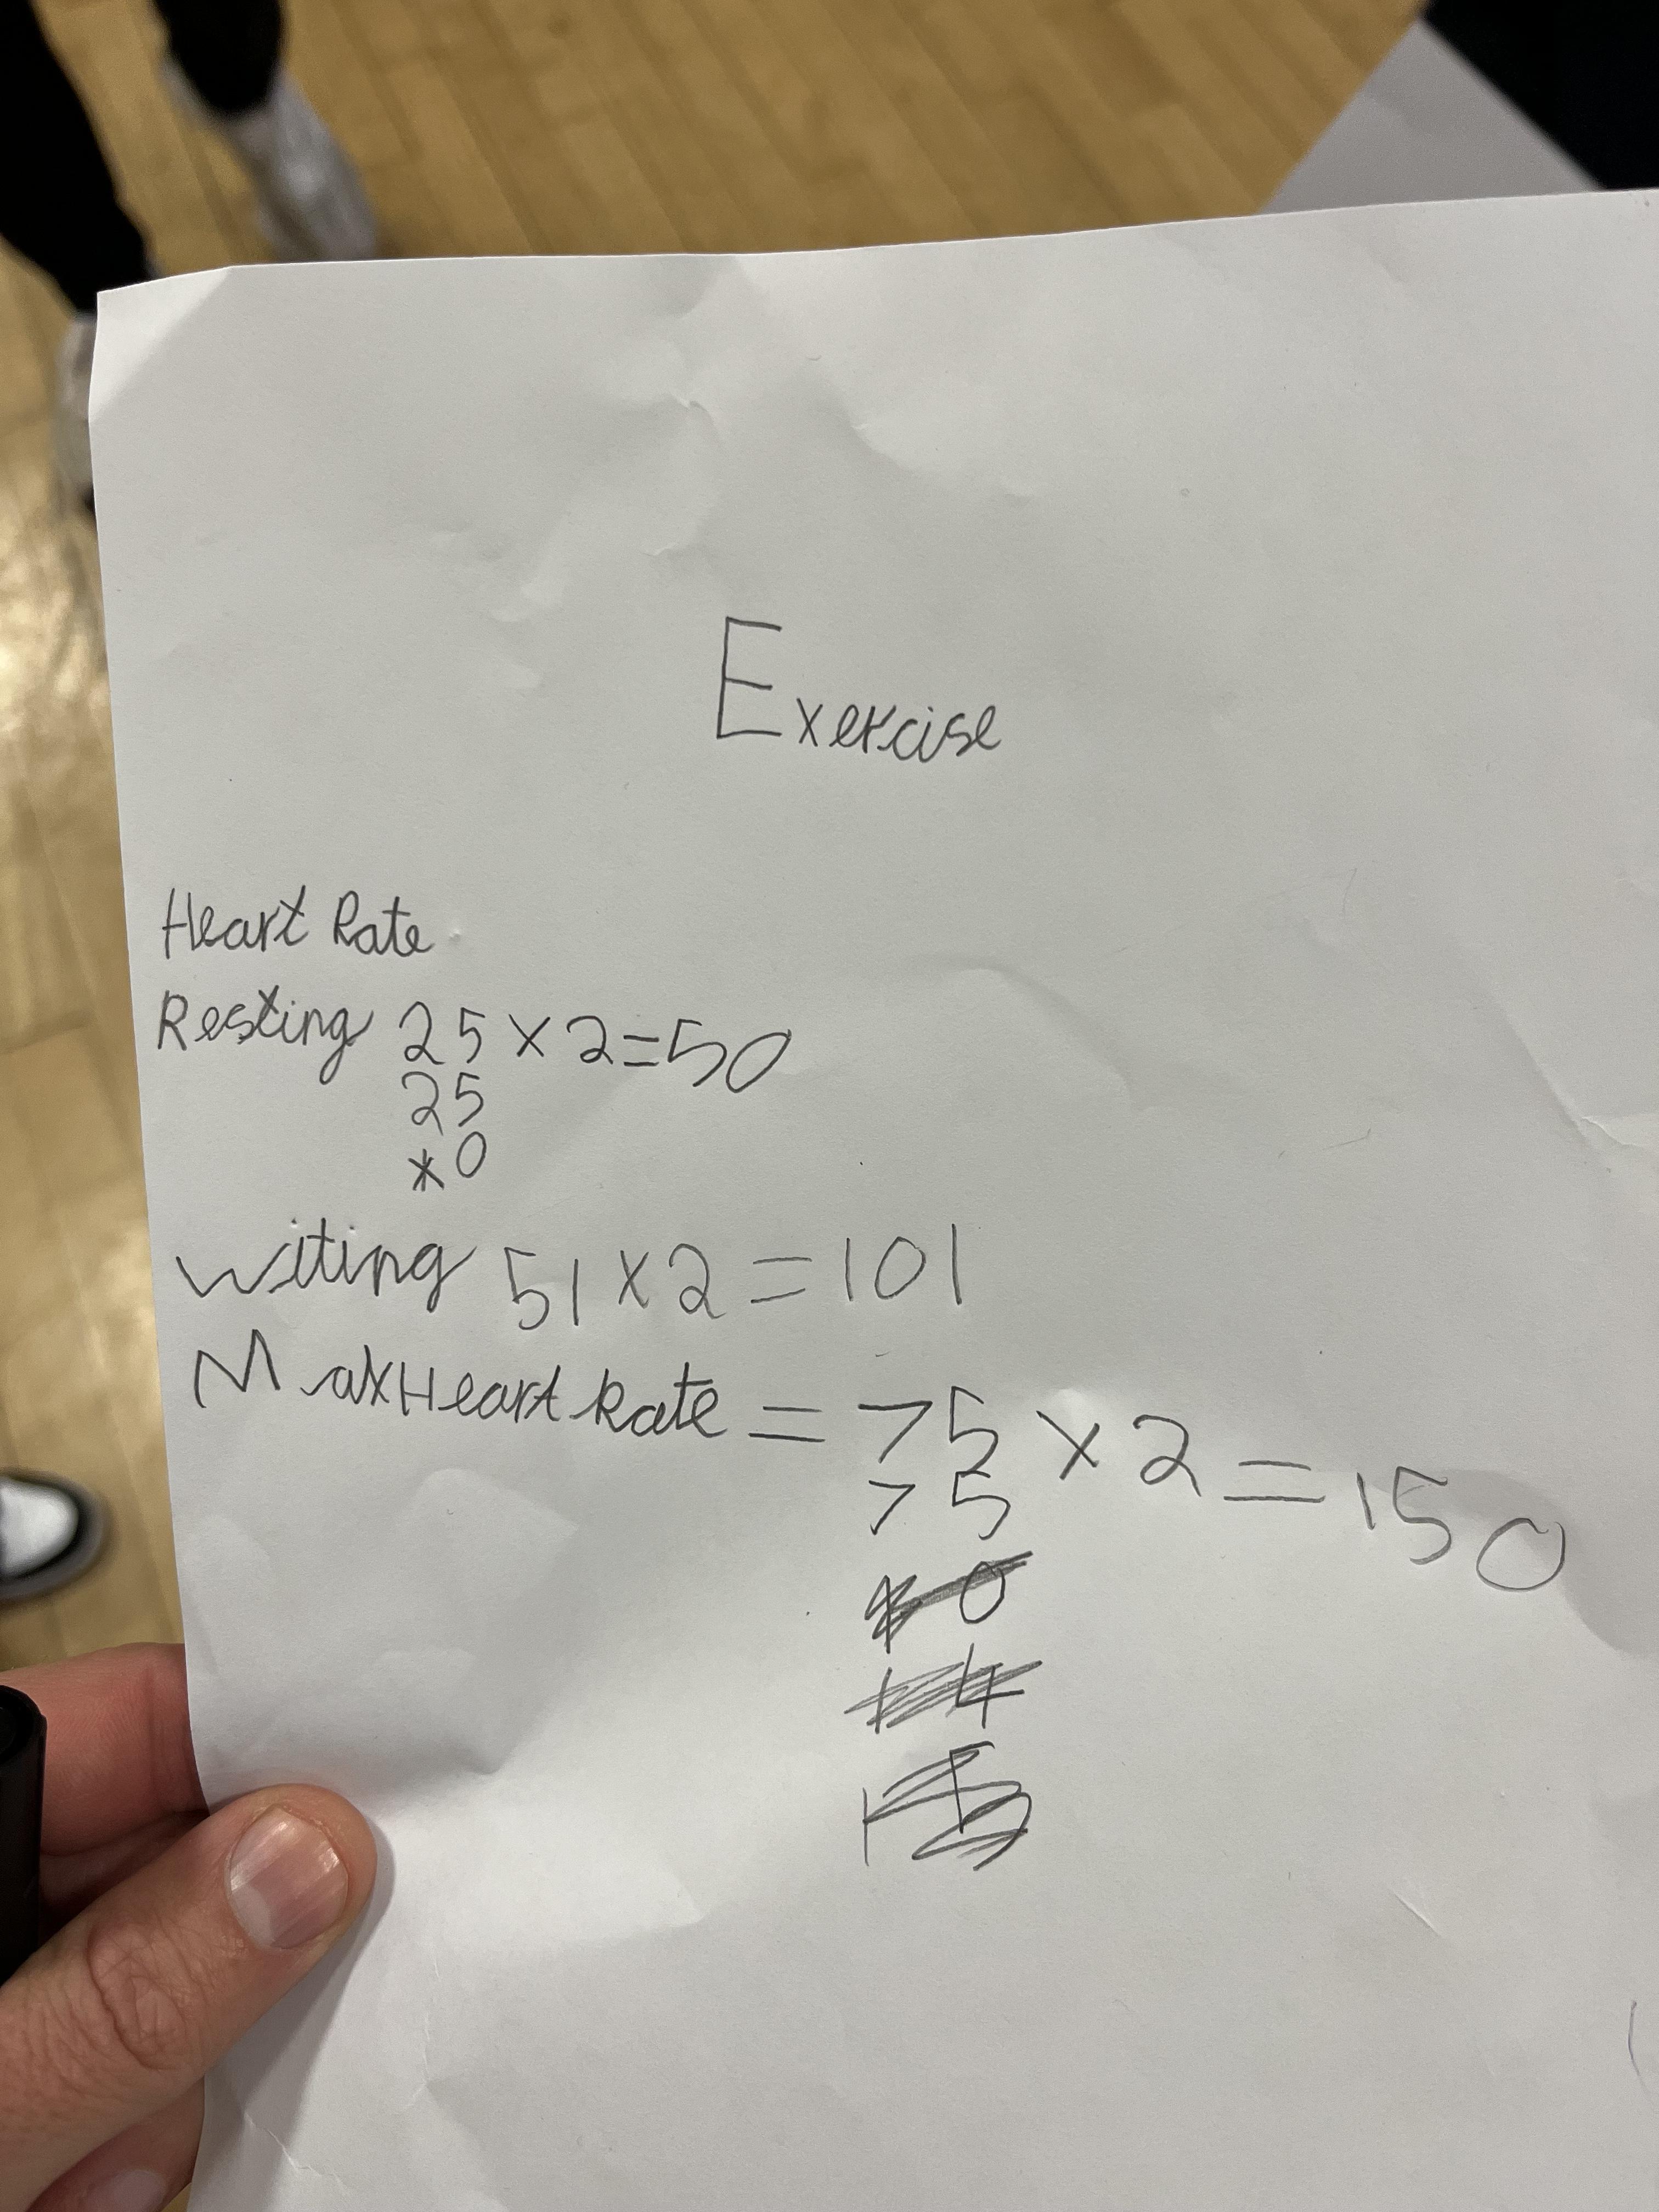 Exercise
Heart Rate
Resting 25 x 2 = 50
25
0
Witing 51 x 2 = 101
Max Heart Rate = 75 x 2 = 150
75
0
14